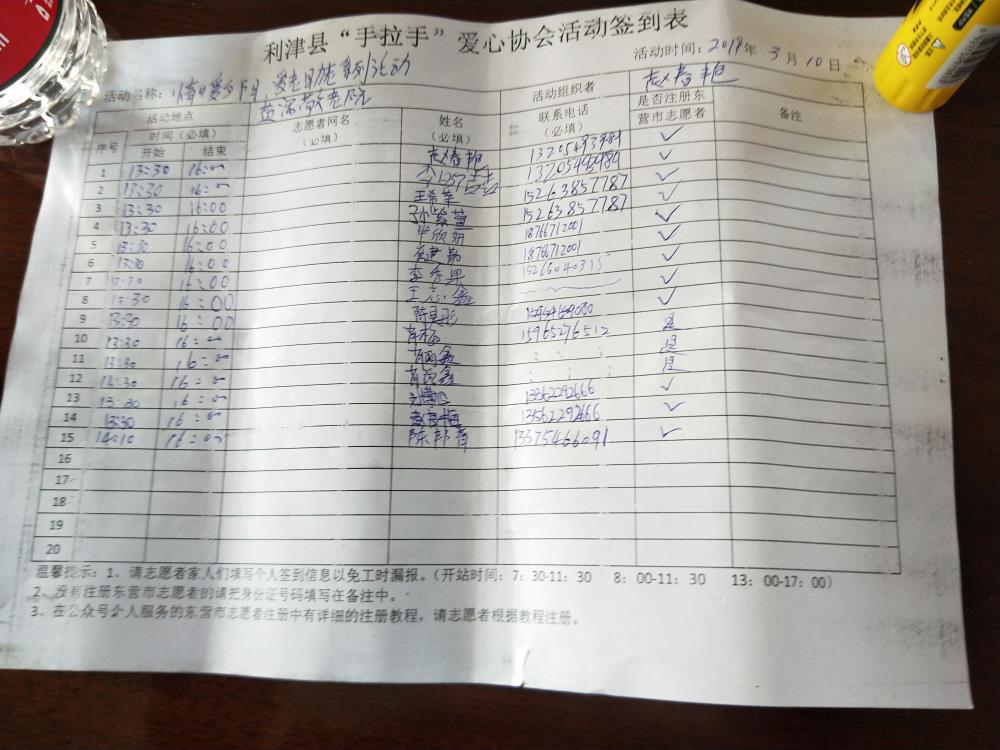 利津县“手拉手”爱心协会活动签到表
活动时间：2018年 3月 10日
活动名称： 爱老助老系列活动
活动组织者 赵春艳
活动地点 敬老院
志愿者网名（必填） 姓名（必填） 联系电话（必填） 是否注册东营市志愿者 备注
序号 时间（必填） 开始 结束
1 13:30 16:00 赵春艳 13205493989 ✓
2 13:30 16:00 13205493989 ✓
3 13:30 16:00 王希军 15263857787 ✓
4 13:30 16:00 孙紫萱 15263857787 ✓
5 13:30 16:00 毕欣妍 18766712001 ✓
6 13:30 16:00 18766712001 ✓
7 13:30 16:00 李秀果 ✓
8 13:30 16:00 王志鑫 ✓
9 13:30 16:00 ✓
10 13:30 16:00 15965276512 是
11 13:30 16:00 是
12 13:30 16:00 是
13 13:30 16:00 13562292666 ✓
14 13:30 16:00 13562292666 ✓
15 14:10 16:00 陈邦青 13375466091 ✓
16
17
18
19
20
温馨提示：1、请志愿者家人们填写个人签到信息以免工时漏报。（开站时间：7：30-11：30 8：00-11：30 13：00-17：00）
2、没有注册东营市志愿者的请把身份证号码填写在备注中。
3、在公众号个人服务的东营市志愿者注册中有详细的注册教程，请志愿者根据教程注册。